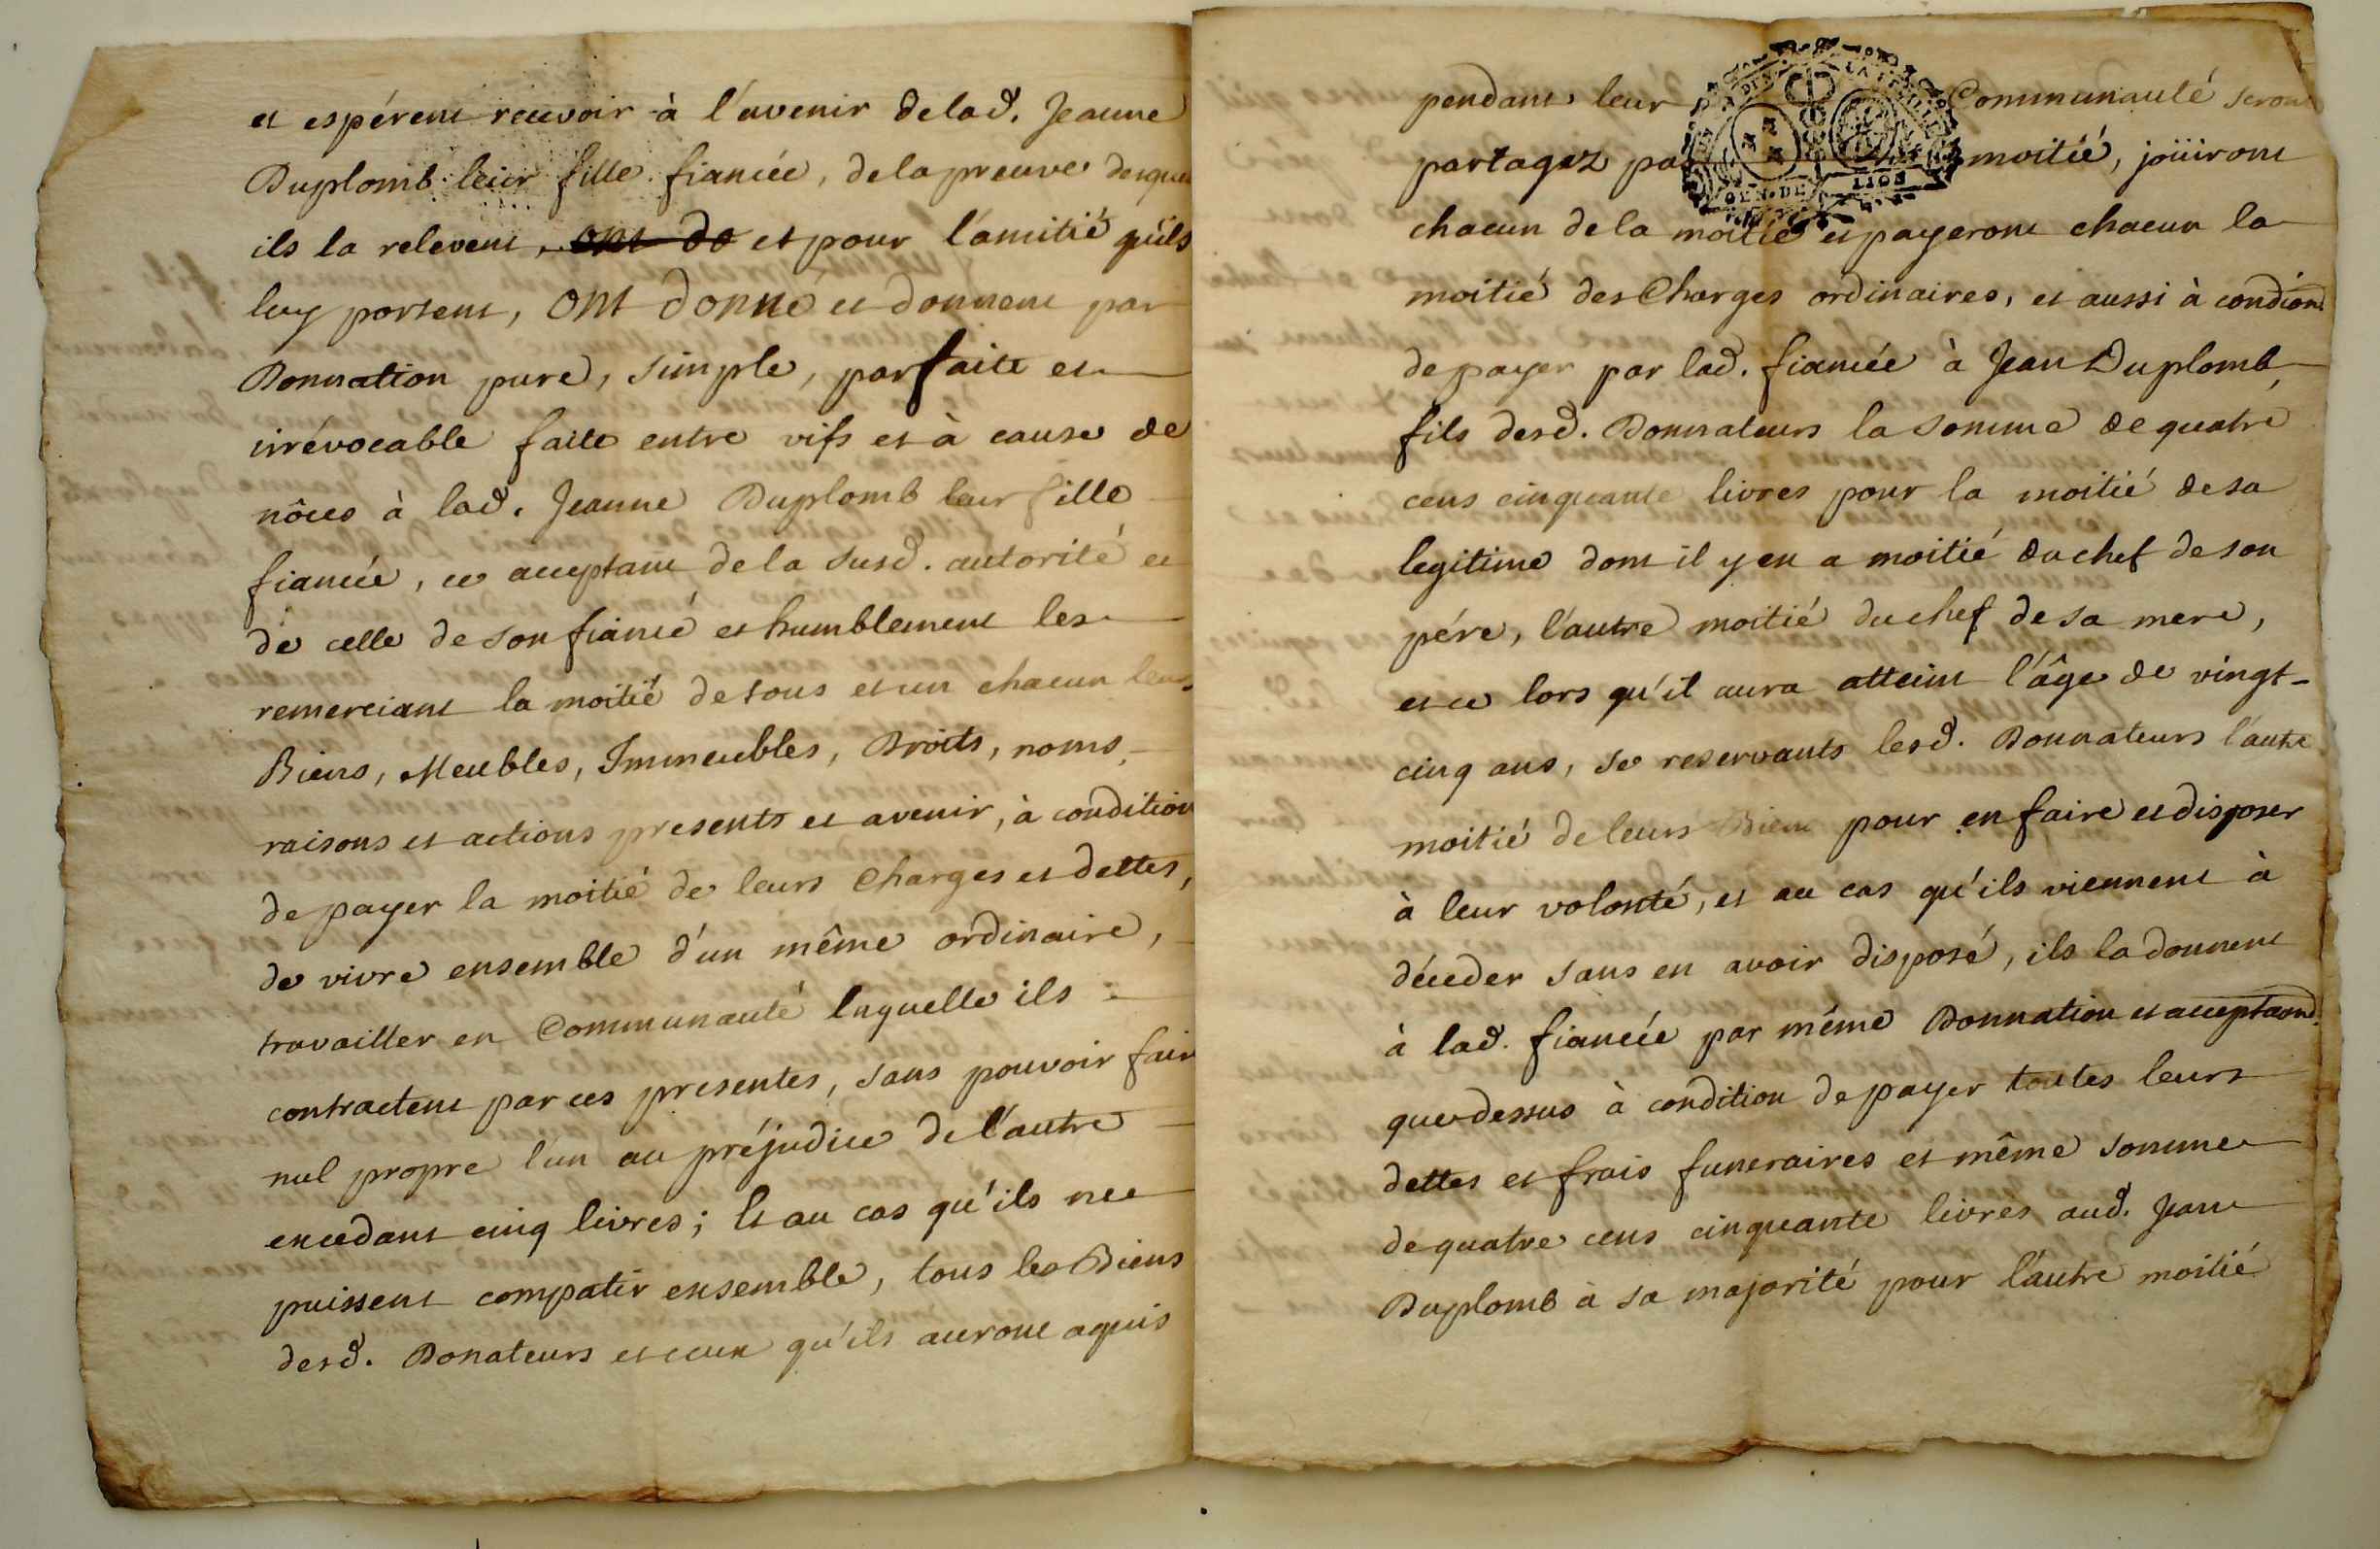 et espérent recevoir à l'avenir de lad. Jeanne
Duplomb leur fille fiancée, de la preuve desque
ils la relevent, ont do et pour l'amitié qu'ils
luy portent, ont donné et donnent par
Donnation pure, simple, parfaite et
irrévocable faite entre vifs et à cause de
nôces à lad. Jeanne Duplomb leur fille
fiancée, ce acceptant de la susd. autorité et
de celle de son fiancé et humblement les
remerciant la moitié de tous et un chacun leurs
Biens, Meubles, Immeubles, Droits, noms,
raisons et actions presents et avenir, à condition
de payer la moitié de leurs Charges et dettes,
de vivre ensemble d'un même ordinaire,
travailler en Communauté laquelle ils
contractent par ces presentes, sans pouvoir fair
nul propre l'un au préjudice de l'autre
excedant cinq livres; Et au cas qu'ils ne
puissent compatir ensemble, tous les Biens
desd. Donateurs et ceux qu'ils auront aquis
pendant leur Communauté seront
partagez par moitié, joüiront
chacun de la moitié et payeront chacun la
moitié des Charges ordinaires, et aussi à condion
de payer par lad. fiancée à Jean Duplomb,
fils desd. Donnateurs la somme de quatre
cens cinquante livres pour la moitié de sa
legitime dont il y en a moitié du chef de son
pére, l'autre moitié du chef de sa mere,
et ce lors qu'il aura atteint l'âge de vingt-
cinq ans, se reservants lesd. Donnateurs l'autre
moitié de leurs Biens pour en faire et disposer
à leur volonté, et au cas qu'ils viennent à
déceder sans en avoir disposé, ils la donnent
à lad. fiancée par même Donnation et acceptaond.
que dessus à condition de payer toutes leurs
dettes et frais funeraires et même somme
de quatre cens cinquante livres aud. Jean
Duplomb à sa majorité pour l'autre moitié
GEN. DE LION